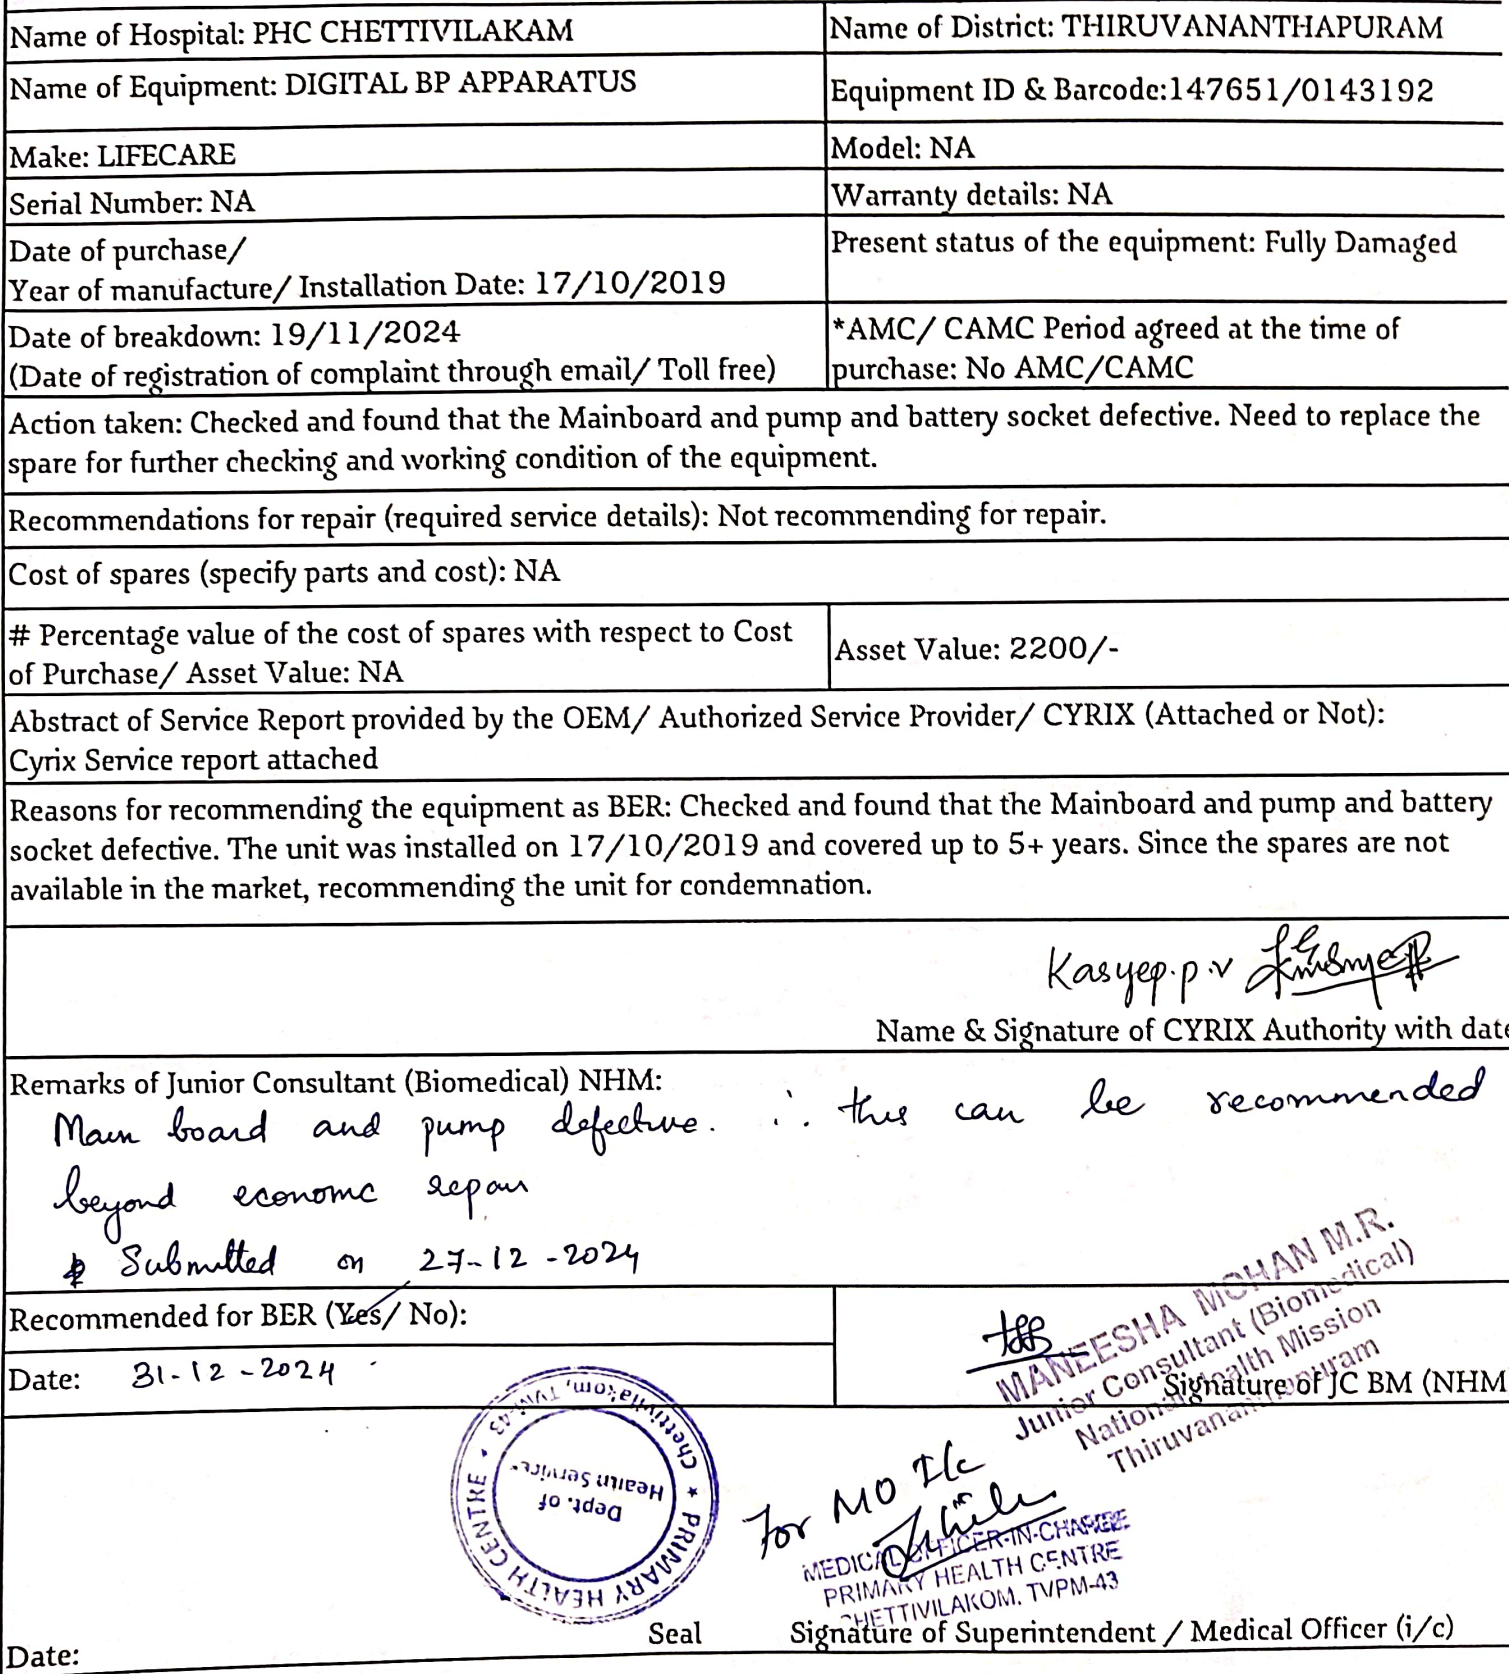 Name of Hospital: PHC CHETTIVILAKAM
Name of District: THIRUVANANTHAPURAM
Name of Equipment: DIGITAL BP APPARATUS
Equipment ID & Barcode:147651/0143192
Make: LIFECARE
Model: NA
Serial Number: NA
Warranty details: NA
Date of purchase/
Year of manufacture/ Installation Date: 17/10/2019
Present status of the equipment: Fully Damaged
Date of breakdown: 19/11/2024
(Date of registration of complaint through email/ Toll free)
*AMC/ CAMC Period agreed at the time of
purchase: No AMC/CAMC
Action taken: Checked and found that the Mainboard and pump and battery socket defective. Need to replace the
spare for further checking and working condition of the equipment.
Recommendations for repair (required service details): Not recommending for repair.
Cost of spares (specify parts and cost): NA
# Percentage value of the cost of spares with respect to Cost
of Purchase/ Asset Value: NA
Asset Value: 2200/-
Abstract of Service Report provided by the OEM/ Authorized Service Provider/ CYRIX (Attached or Not):
Cyrix Service report attached
Reasons for recommending the equipment as BER: Checked and found that the Mainboard and pump and battery
socket defective. The unit was installed on 17/10/2019 and covered up to 5+ years. Since the spares are not
available in the market, recommending the unit for condemnation.
Kasyep.p.v
Name & Signature of CYRIX Authority with date
Remarks of Junior Consultant (Biomedical) NHM:
Main board and pump defective. ∴ this can be recommended
beyond economc repair
Submitted on 27-12-2024
Recommended for BER (Yes/ No):
Date: 31-12-2024
MANEESHA MOHAN M.R.
Junior Consultant (Biomedical)
National Health Mission
Thiruvananthapuram
Signature of JC BM (NHM
PRIMARY HEALTH CENTRE
Chettivilakom, TVM-43
Dept. of
Health Service
For MO I/c
MEDICAL OFFICER-IN-CHARGE
PRIMARY HEALTH CENTRE
CHETTIVILAKOM. TVPM-43
Seal
Signature of Superintendent / Medical Officer (i/c)
Date: